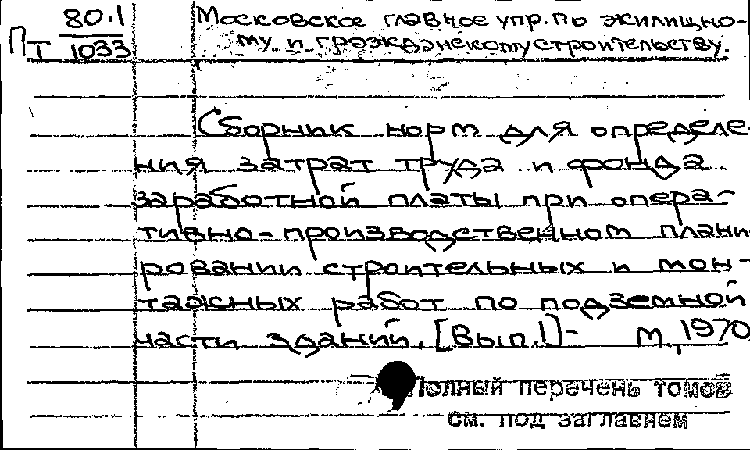 80.1
Пт 1033
Московское главное упр. по жилищно-
му и гражданскому строительству.
Сборник норм для определе-
ния затрат труда и фонда
заработной платы при опера-
тивно-производственном плани
ровании строительных и мон-
тажных работ по подземной
части зданий. [Вып.1]- М., 1970
Полный перечень томов
см. под заглавием